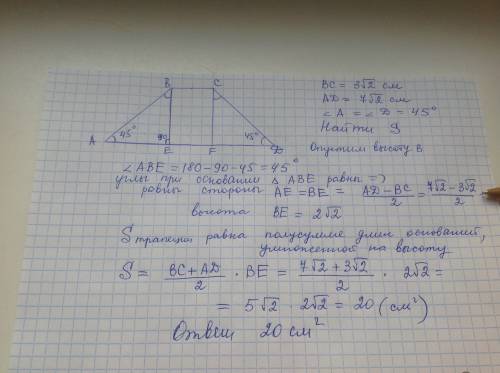 B C
A 45° 90 E F 45° D
BC = 3√2 см
AD = 7√2 см
∠A = ∠D = 45°
Найти S
Опустим высоту В
∠ABE = 180 - 90 - 45 = 45°
углы при основании △ ABE равны =>
равны стороны AE = BE = (AD - BC)/2 = (7√2 - 3√2)/2
высота BE = 2√2
S трапеции равна полусумме длин оснований,
умноженной на высоту
S = (BC + AD)/2 · BE = (7√2 + 3√2)/2 · 2√2 =
= 5√2 · 2√2 = 20 (см²)
Ответ 20 см²